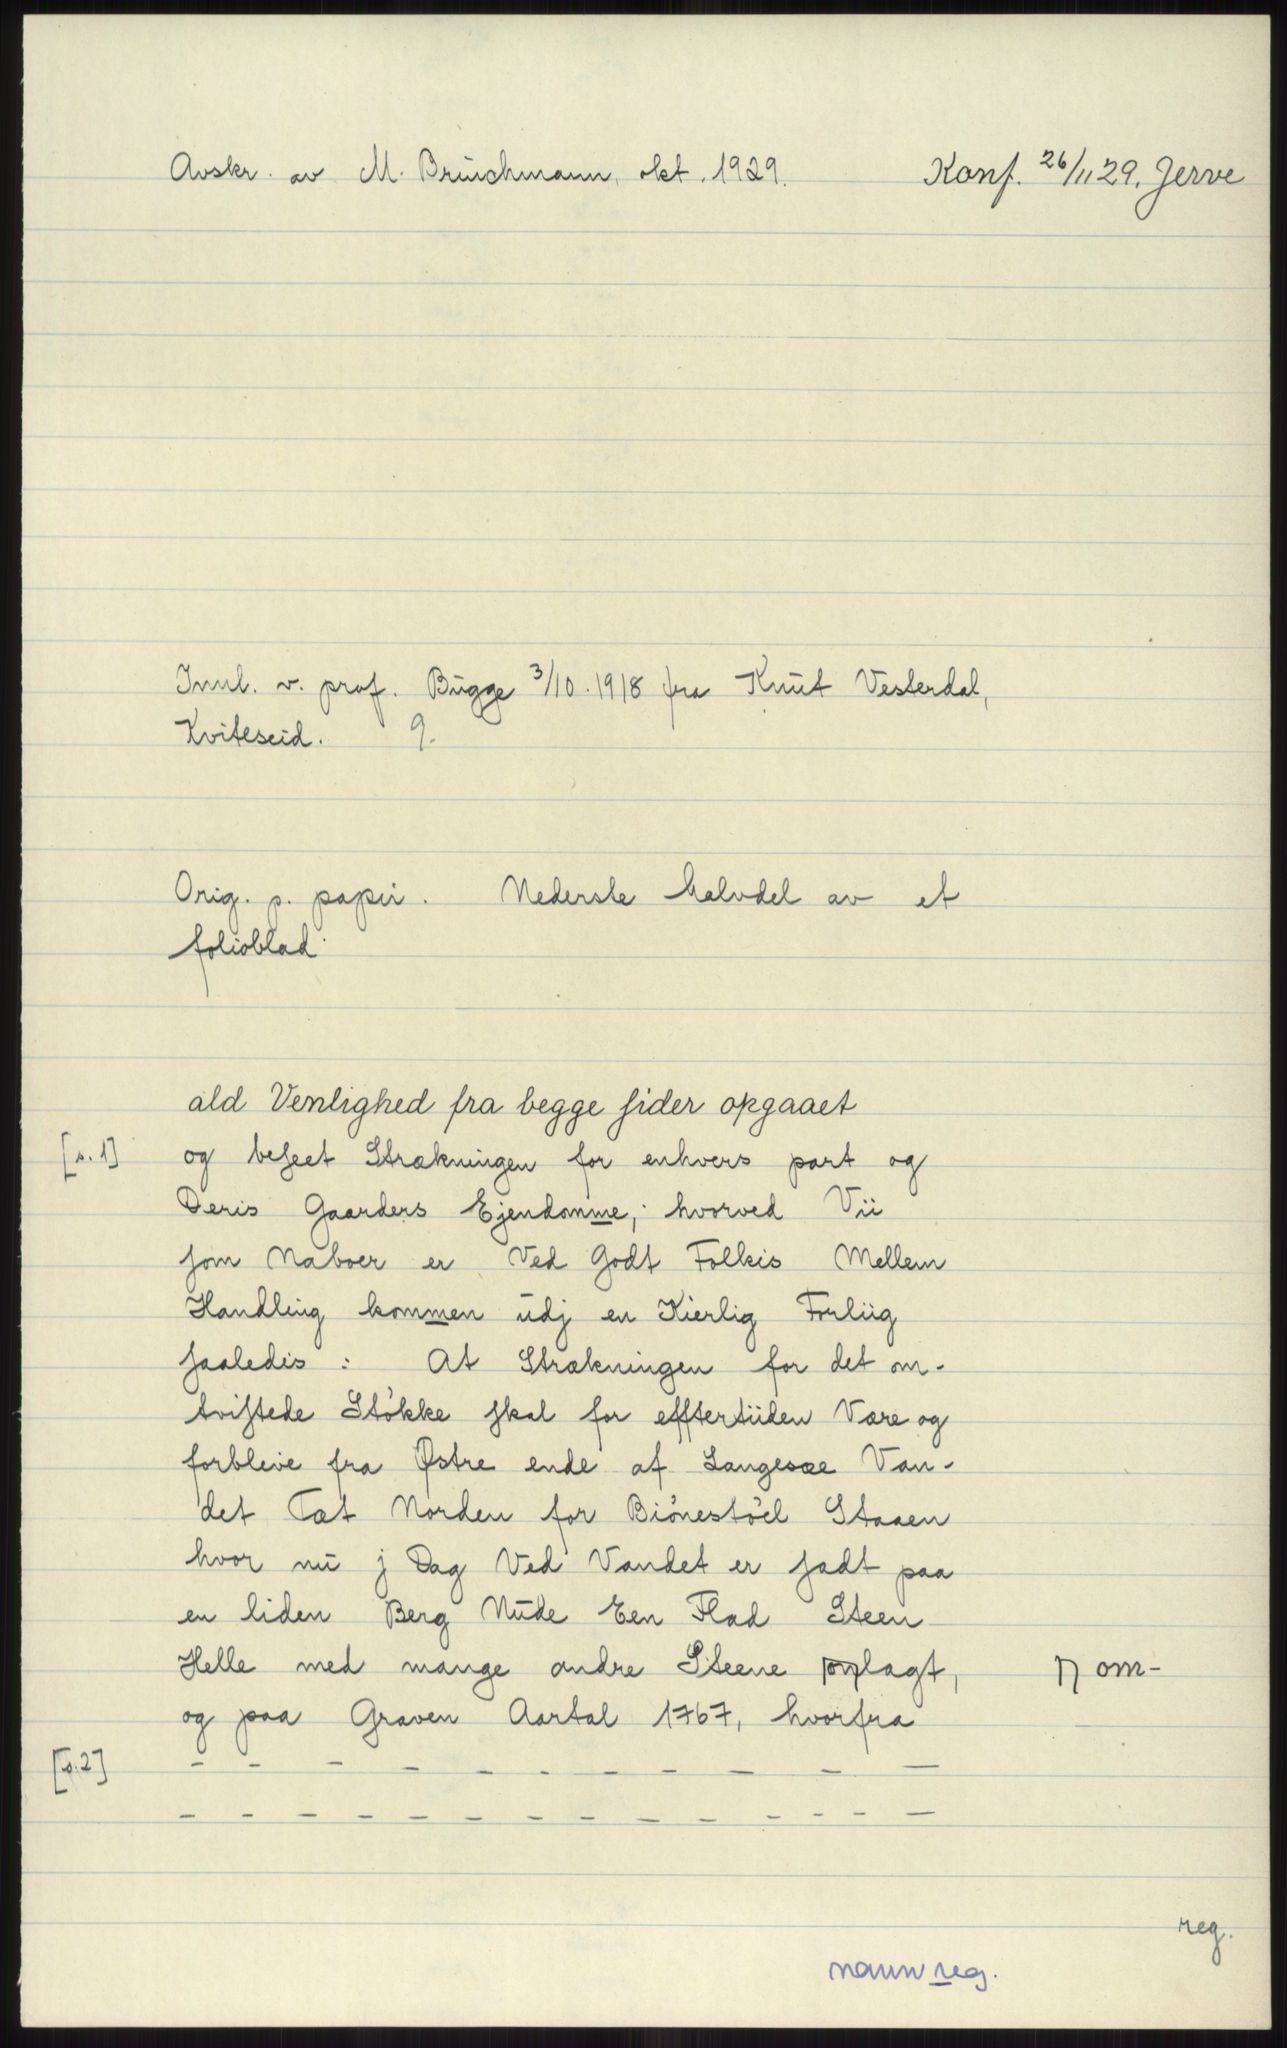 Avskr. av M. Brüchmann, okt. 1929.
Konf. 26/11 29. Jerve
Innl. v. prof. Bugge 3/10. 1918 fra Knut Vesterdal,
Kviteseid. 9.
Orig. p. papir. Nederste halvdel av et
folioblad.
ald Venlighed fra begge sider opgaaet
[s. 1] og beseet Strækningen for enhvers part og
Deris Gaarders Ejendomme, hvorved Vii
som Naboer er Ved Godt Folkis Mellem
Handling kommen udj en Kierlig Forliig
saaledis : At Strækningen for det om-
tvistede Støkke skal for efftertiiden Være og
forblive fra Østre ende af Langesæe Van-
det Tæt Norden for Biønestøel Staaen
hvor nu j Dag Ved Vandet er sadt paa
en liden Berg Nude Een Flad Steen
Helle med mange andre Steene omlagt, om-
og paa Graven Aartal 1767, hvorfra
[s. 2] - - - - - - - - - - -
- - - - - - - - - - - - -
reg.
navnreg.